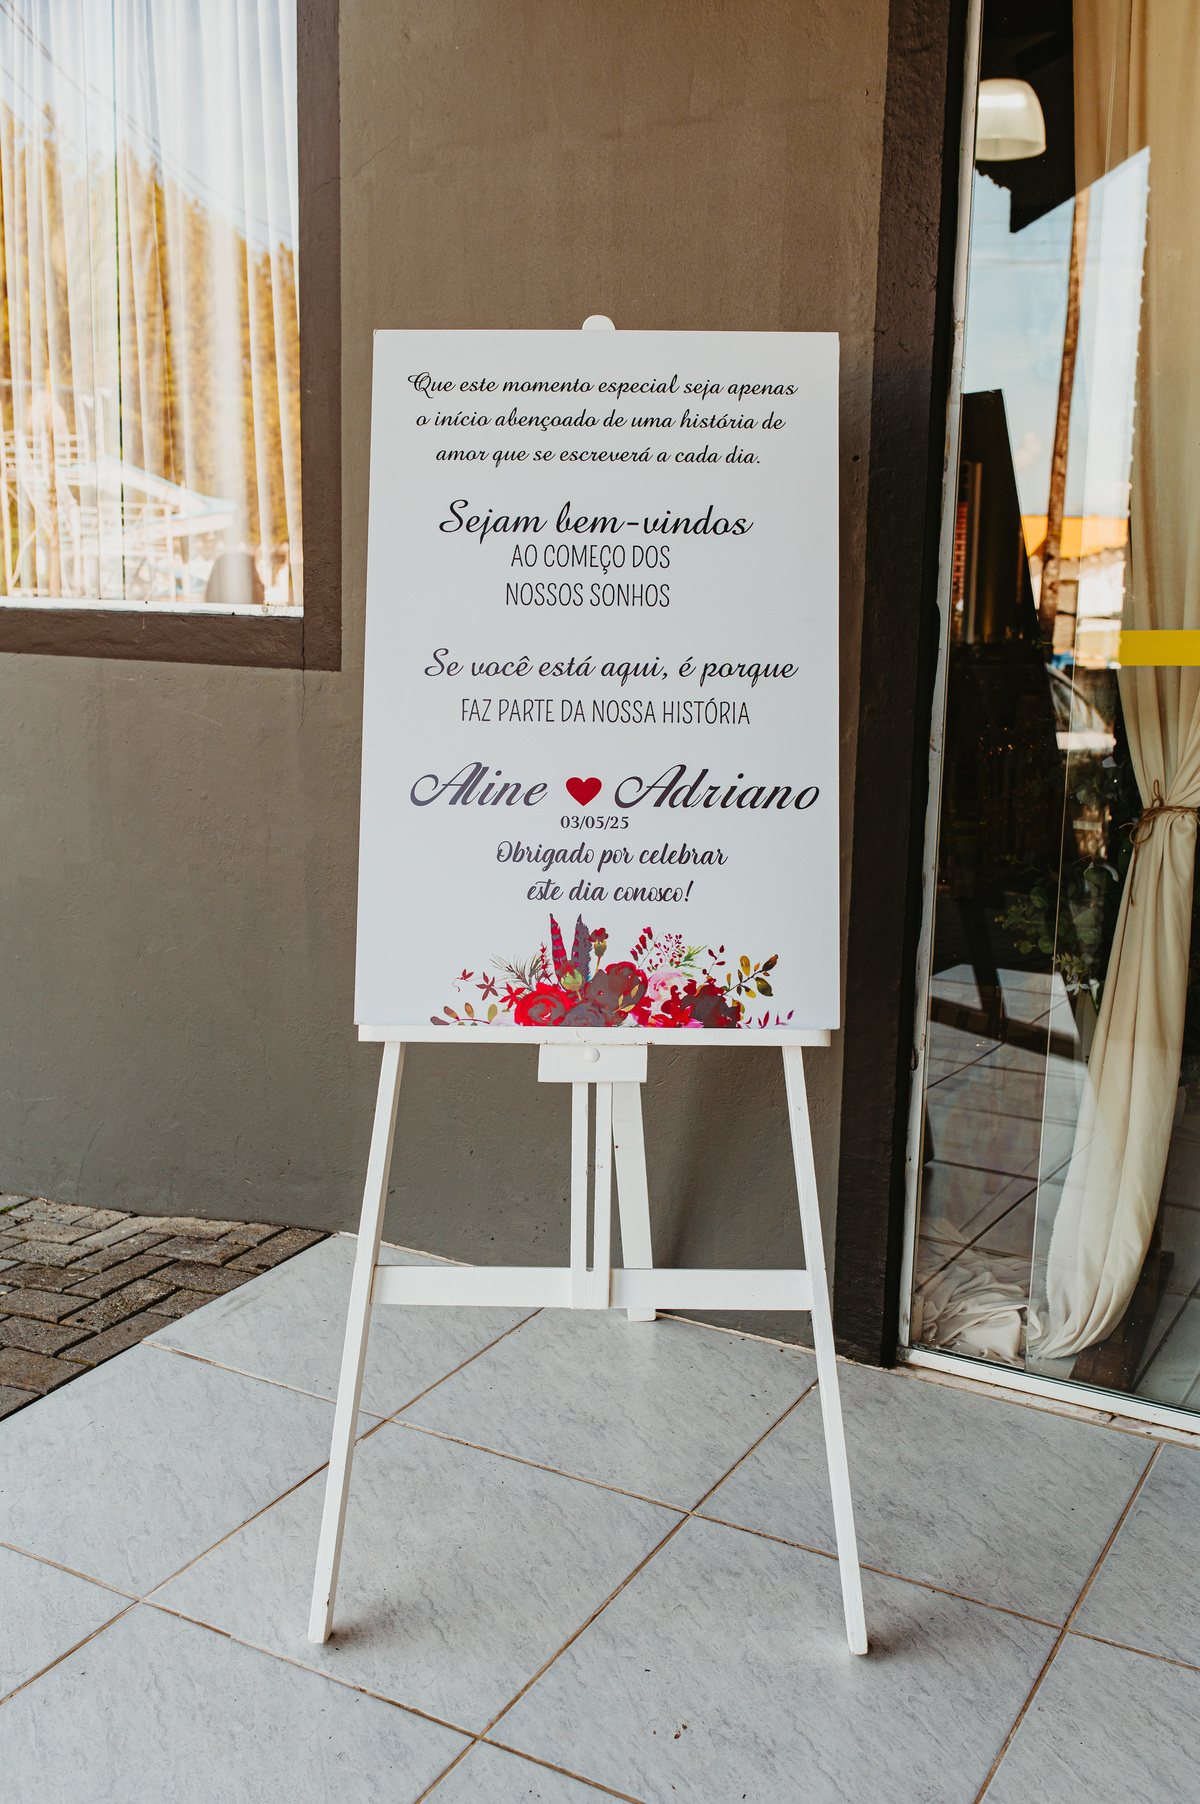 Que este momento especial seja apenas
o início abençoado de uma história de
amor que se escreverá a cada dia.
Sejam bem-vindos
AO COMEÇO DOS
NOSSOS SONHOS
Se você está aqui, é porque
FAZ PARTE DA NOSSA HISTÓRIA
Aline ❤ Adriano
03/05/25
Obrigado por celebrar
este dia conosco!